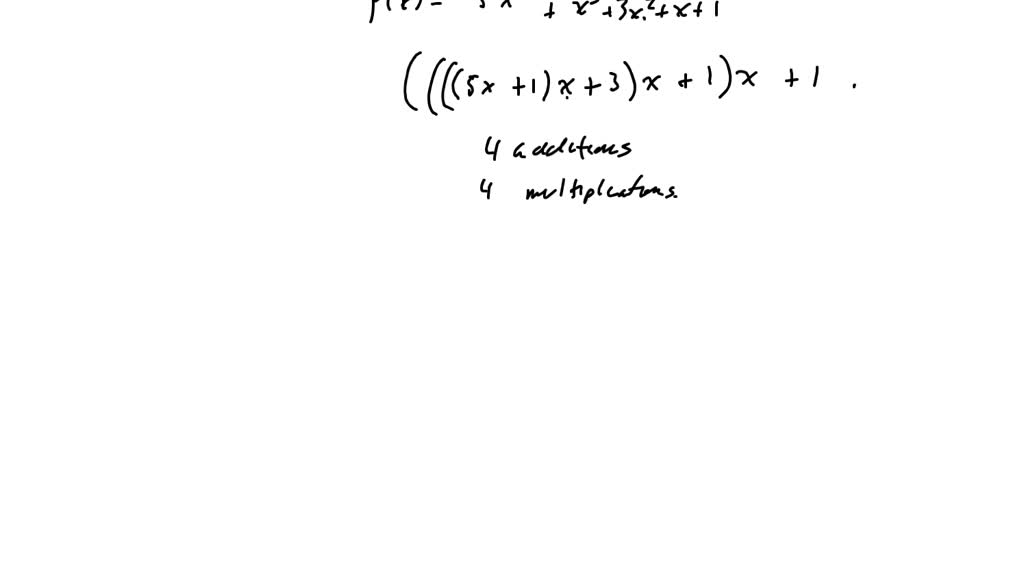 + x³ + 3x² + x + 1
((((5x + 1)x + 3)x + 1)x + 1 .
4 additions
4 multiplications.